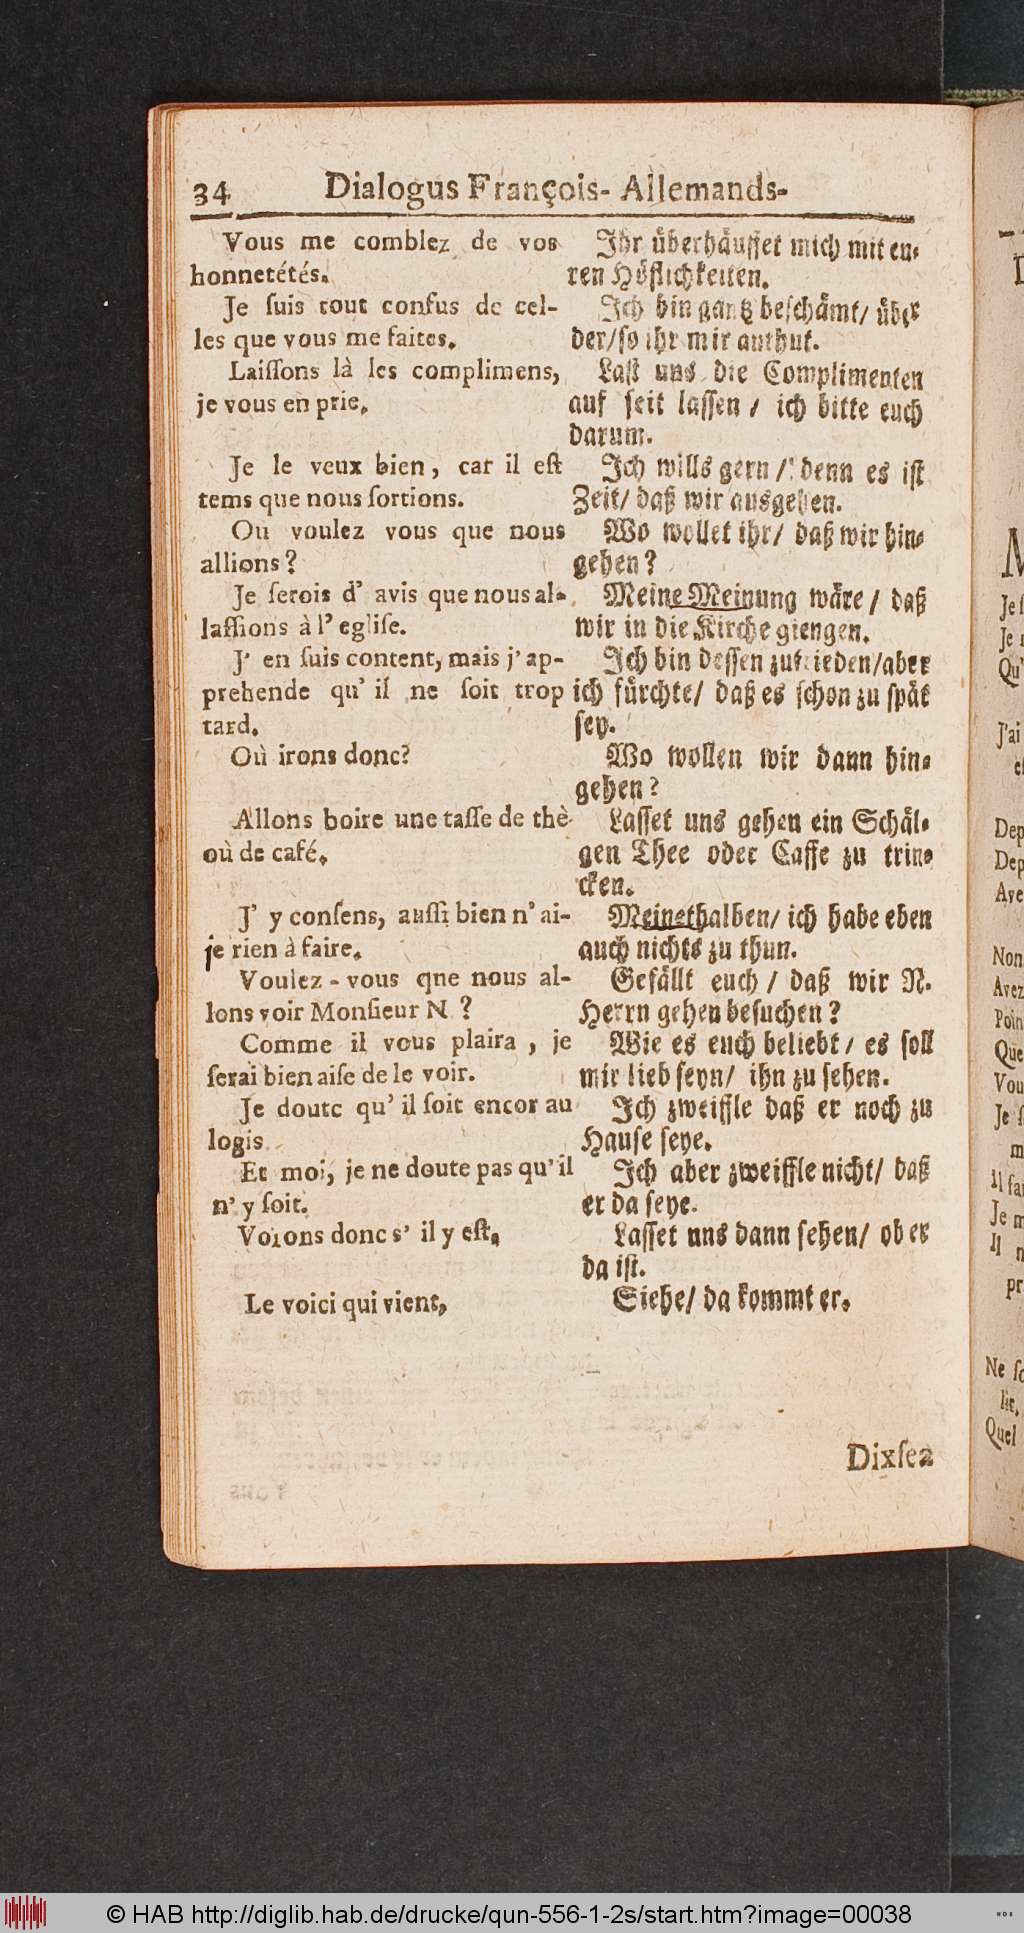 34 Dialogus François- Allemands-
Vous me comblez de vos
honnetétés.
Je ſuis tout confus de cel-
les que vous me faites.
Laiſſons là les complimens,
je vous en prie.
Je le veux bien, car il eſt
tems que nous ſortions.
Ou voulez vous que nous
allions?
Je ſerois d' avis que nous al-
laſſions à l' egliſe.
J' en ſuis content, mais j' ap-
prehende qu' il ne ſoit trop
tard.
Où irons donc?
Allons boire une taſſe de thè
où de café.
J' y conſens, auſſi bien n' ai-
je rien à faire.
Voulez-vous qne nous al-
lons voir Monſieur N ?
Comme il vous plaira , je
ſerai bien aiſe de le voir.
Je doute qu' il ſoit encor au
logis
Et moi, je ne doute pas qu' il
n' y ſoit.
Voions donc s' il y eſt.
Le voici qui vient,
Ihr überhäuffet mich mit eu-
ren Höflichkeiten.
Ich bin gantz beſchämt/ über
der/ſo ihr mir anthut.
Laſt uns die Complimenten
auf ſeit laſſen / ich bitte euch
darum.
Ich wills gern / denn es iſt
Zeit/ daß wir ausgehen.
Wo wollet ihr/ daß wir hin-
gehen?
Meine Meinung wäre / daß
wir in die Kirche giengen.
Ich bin deſſen zufrieden/aber
ich fürchte/ daß es ſchon zu ſpät
ſey.
Wo wollen wir dann hin-
gehen?
Laſſet uns gehen ein Schäl-
gen Thee oder Caffe zu trin-
cken.
Meinethalben/ ich habe eben
auch nichts zu thun.
Gefällt euch / daß wir N.
Herrn gehen beſuchen?
Wie es euch beliebt / es ſoll
mir lieb ſeyn/ ihn zu ſehen.
Ich zweiffle daß er noch zu
Hauſe ſeye.
Ich aber zweiffle nicht/ daß
er da ſeye.
Laſſet uns dann ſehen/ ob er
da iſt.
Siehe/ da kommt er.
Dixſea
Je ſ
Je
Qu'
J'ai
Dep
Dep
Ave
Non
Avez
Poin
Que
Vou
Je ſ
m
Il fa
Je m
Il n
pr
Ne ſ
lit.
Quel
© HAB http://diglib.hab.de/drucke/qun-556-1-2s/start.htm?image=00038